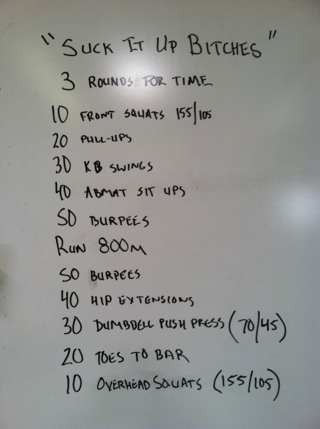 "SUCK IT UP BITCHES"
3 ROUNDS FOR TIME
10 FRONT SQUATS 155/105
20 PULL-UPS
30 KB SWINGS
40 ABMAT SIT UPS
50 BURPEES
RUN 800M
50 BURPEES
40 HIP EXTENSIONS
30 DUMBDELL PUSH PRESS (70/45)
20 TOES TO BAR
10 OVERHEAD SQUATS (155/105)